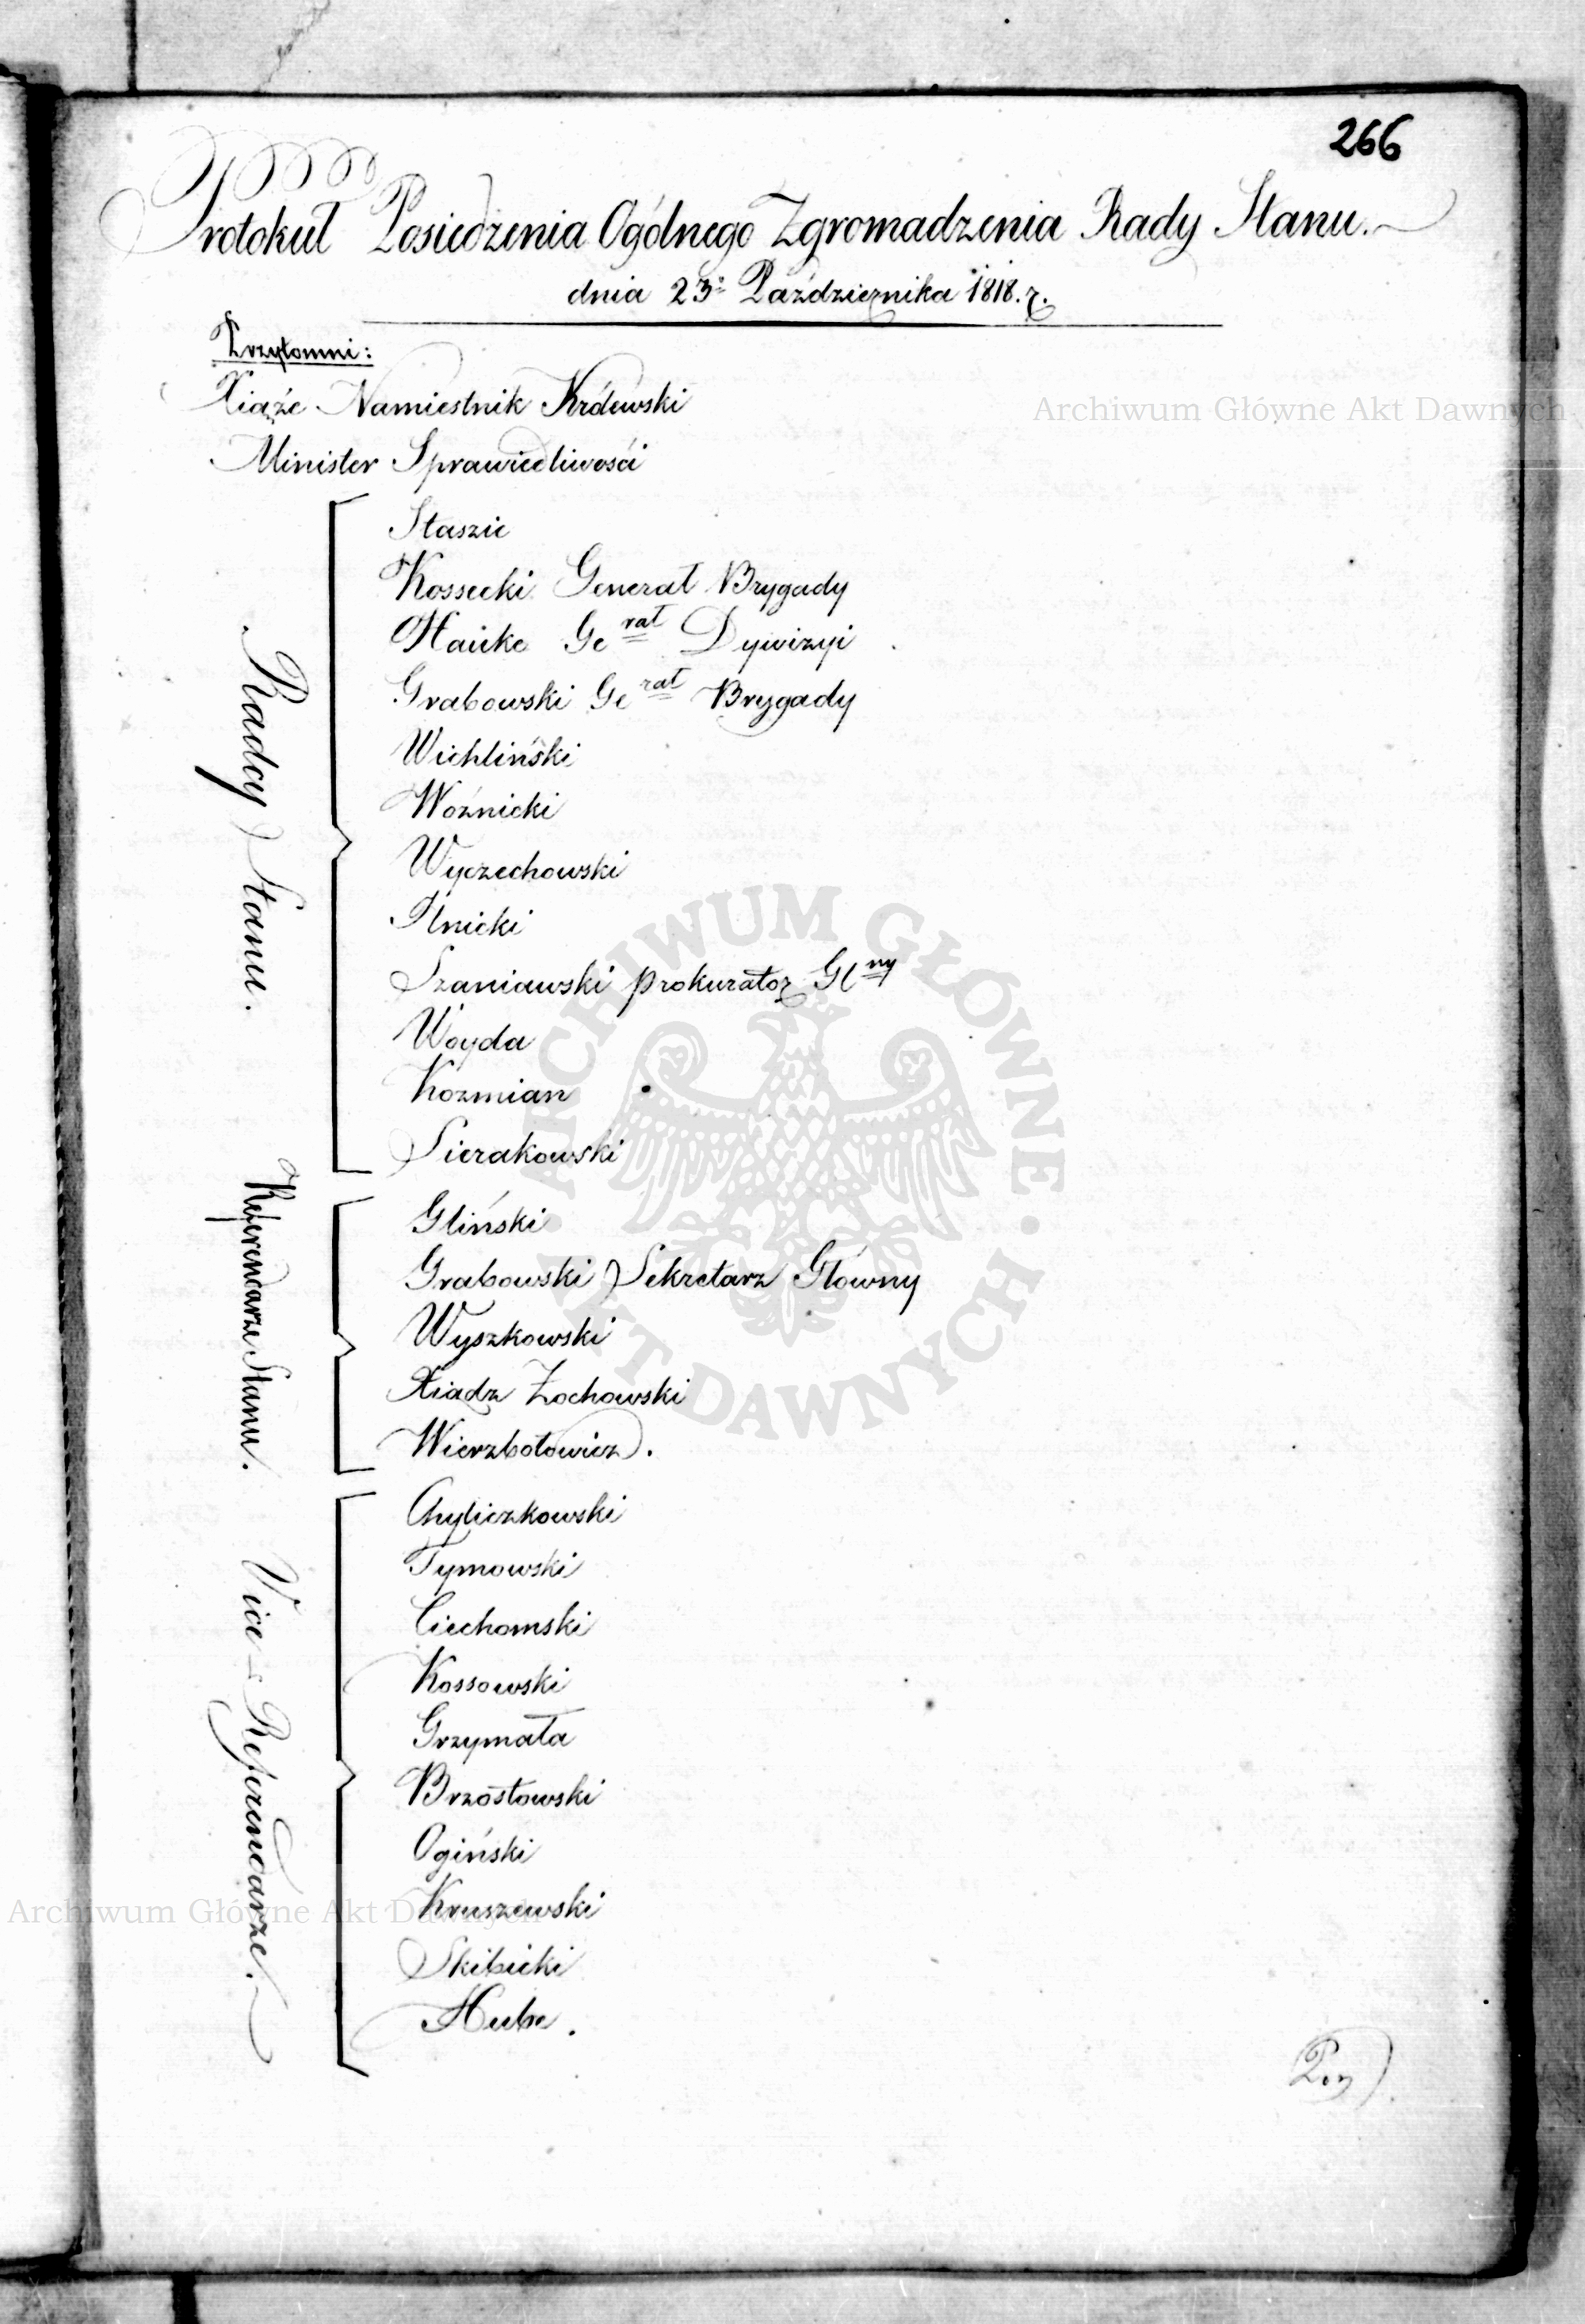 266
Protokuł Posiedzenia Ogólnego Zgromadzenia Rady Stanu.
dnia 23: Października 1818. r.
Przytomni:
Xiąże Namiestnik Królewski
Archiwum Główne Akt Dawnych
Minister Sprawiedliwości
Radcy Stanu.
Staszic
Kossecki Generał Brygady
Hauke Ge rał Dywizyi
Grabowski Ge rał Brygady
Wichliński
Woźnicki
Wyczechowski
Ilnicki
Szaniawski prokurator Gl ny
Woyda
Kozmian
Sierakowski
ARCHIWUM GŁÓWNE · AKT DAWNYCH ·
Referendarze Stanu.
Gliński
Grabowski Sekretarz Główny
Wyszkowski
Xiądz Żochowski
Wierzbołowicz.
Vice - Referendarze.
Chyliczkowski
Tymowski
Ciechomski
Kossowski
Grzymała
Brzostowski
Ogiński
Kruszewski
Archiwum Główne Akt Dawnych
Skibicki
Hube.